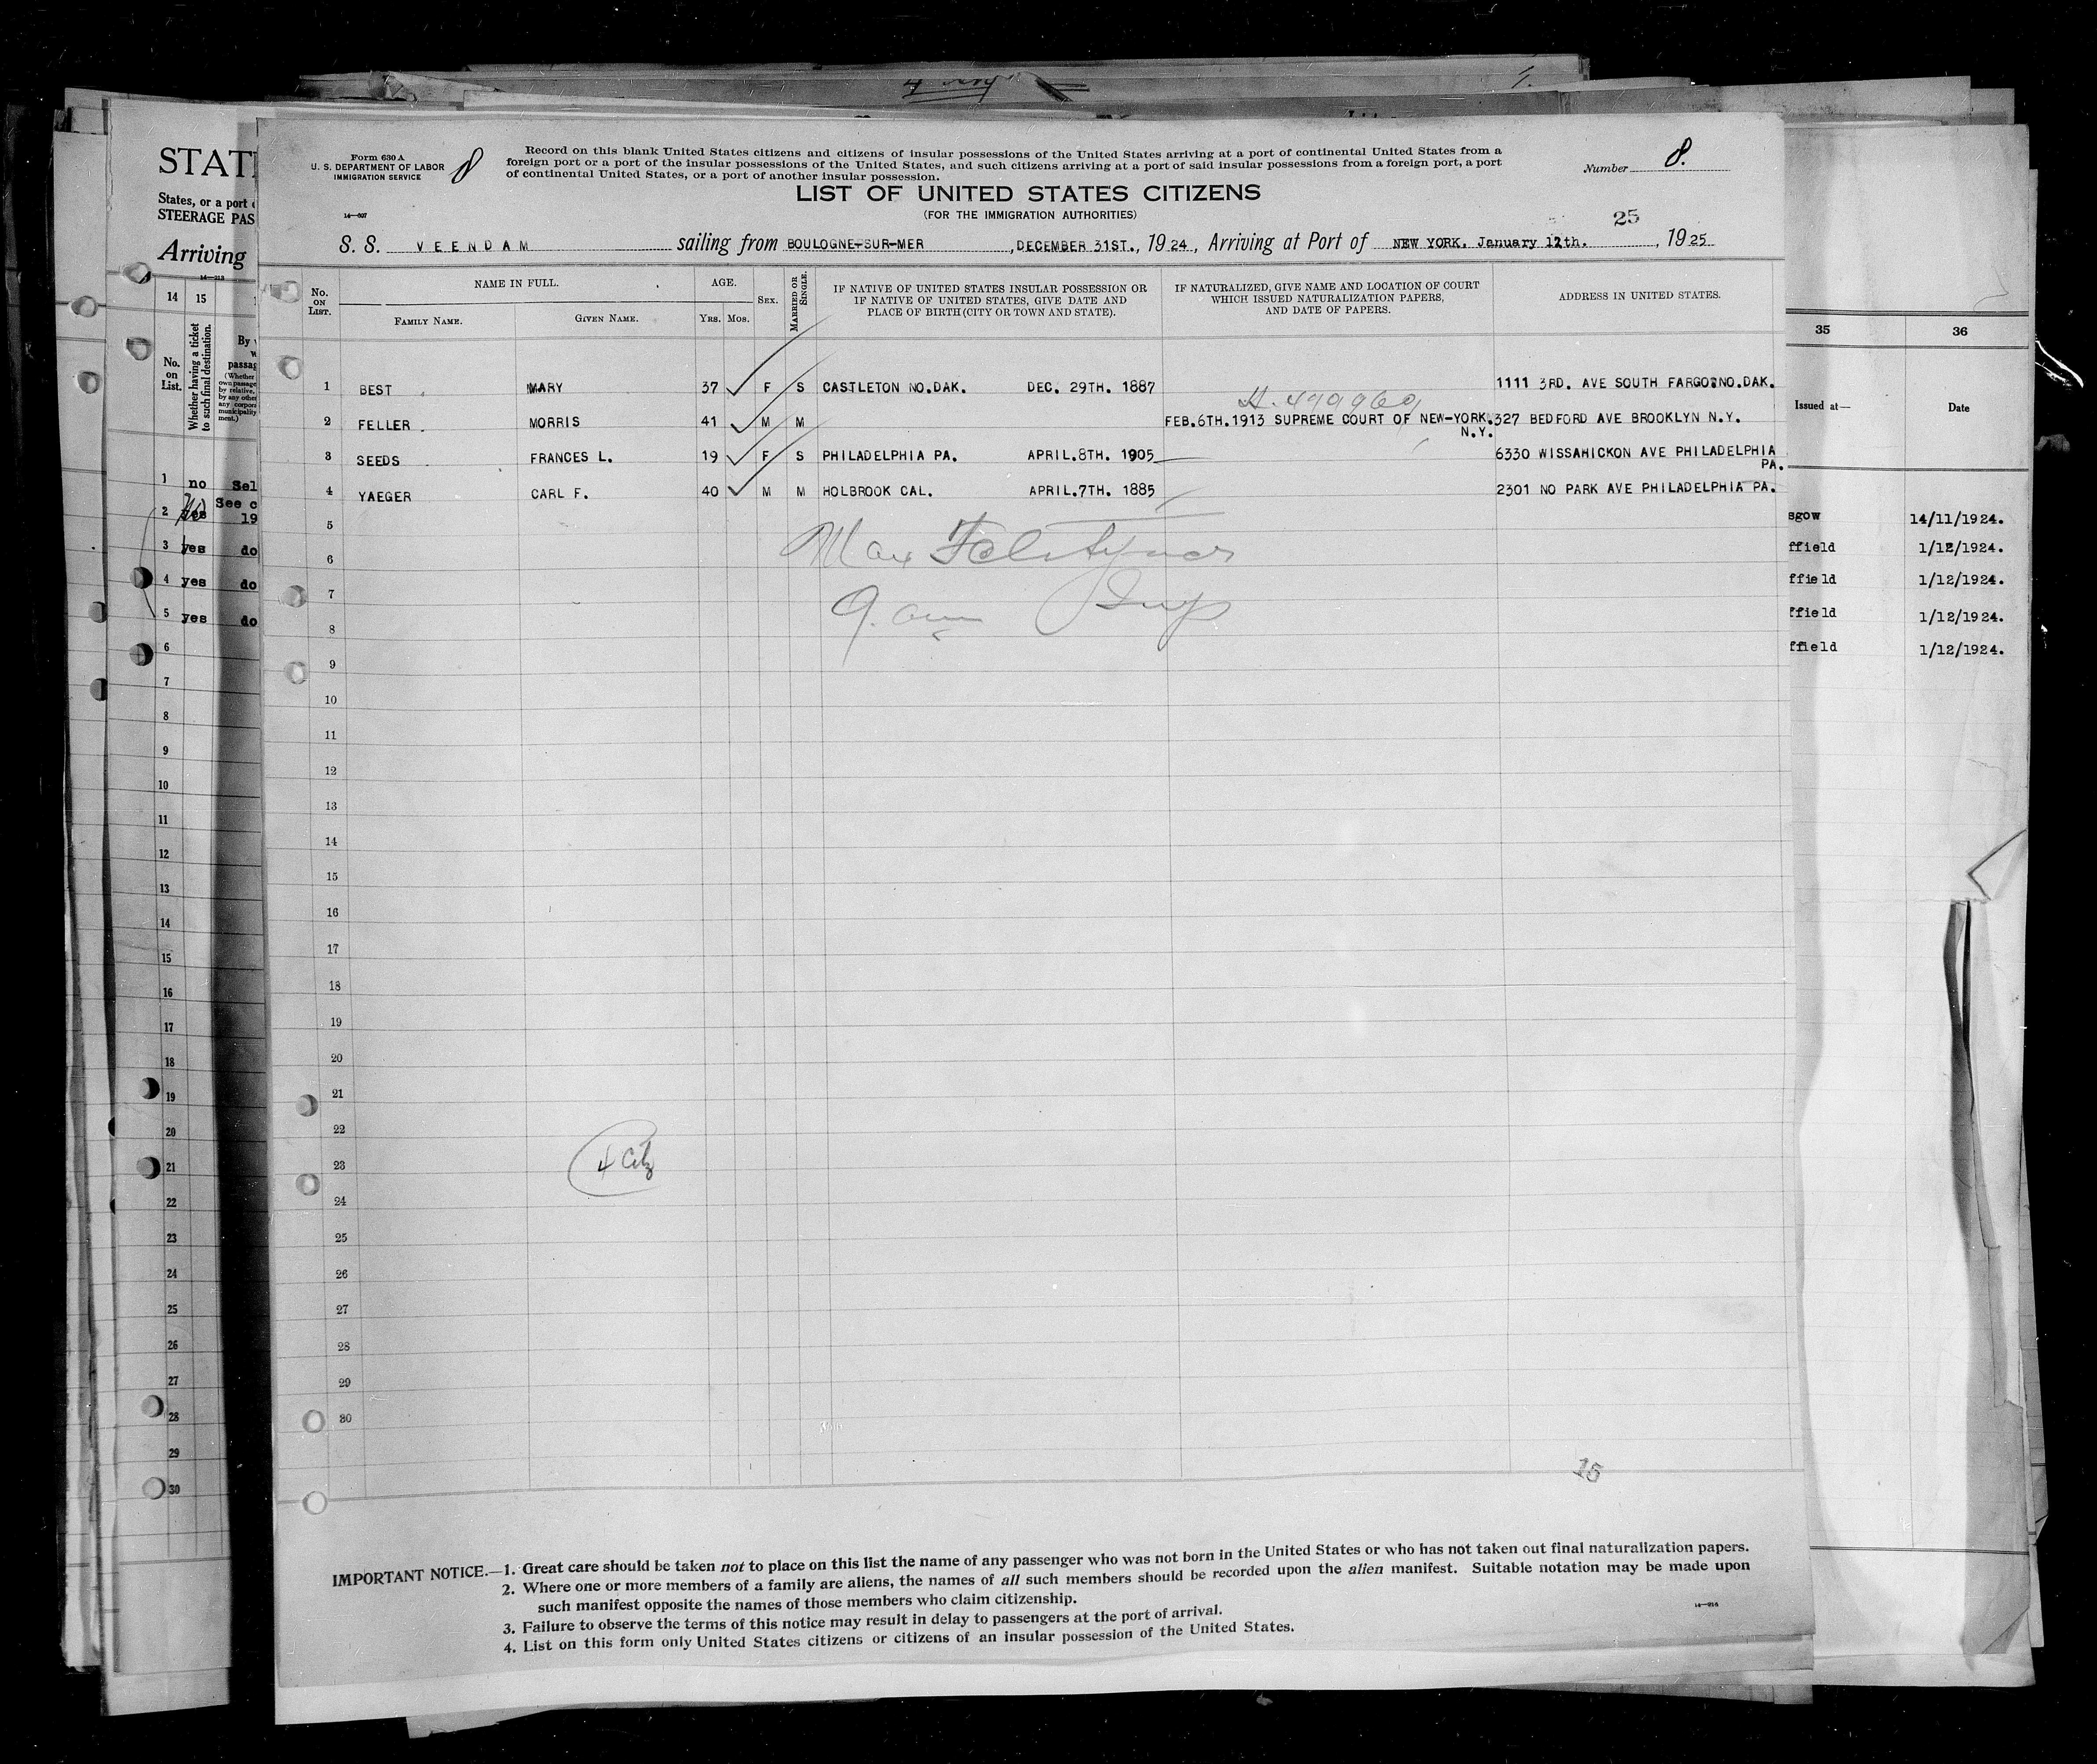 STAT
States, or a port
STEERAGE PAS
Arriving
14 15
Whether having a ticket to such final destination.
No. on List.
1 no Sel
2 yes See c
19
3 yes do
4 yes do
5 yes do
6
7
8
9
10
11
12
13
14
15
16
17
18
19
20
21
22
23
24
25
26
27
28
29
30
Form 630 A
U. S. DEPARTMENT OF LABOR
IMMIGRATION SERVICE
8
Record on this blank United States citizens and citizens of insular possessions of the United States arriving at a port of continental United States from a
foreign port or a port of the insular possessions of the United States, and such citizens arriving at a port of said insular possessions from a foreign port, a port
of continental United States, or a port of another insular possession.
Number 8.
LIST OF UNITED STATES CITIZENS
(FOR THE IMMIGRATION AUTHORITIES)
25
S. S. VEENDAM sailing from BOULOGNE-SUR-MER, DECEMBER 31ST., 1924, Arriving at Port of NEW YORK. January 12th. , 1925
No. ON LIST.
NAME IN FULL.
FAMILY NAME. GIVEN NAME.
AGE.
YRS. MOS.
SEX.
MARRIED OR SINGLE.
IF NATIVE OF UNITED STATES INSULAR POSSESSION OR
IF NATIVE OF UNITED STATES, GIVE DATE AND
PLACE OF BIRTH (CITY OR TOWN AND STATE).
IF NATURALIZED, GIVE NAME AND LOCATION OF COURT
WHICH ISSUED NATURALIZATION PAPERS,
AND DATE OF PAPERS.
ADDRESS IN UNITED STATES.
1 BEST MARY 37 F S CASTLETON NO.DAK. DEC. 29TH. 1887 1111 3RD. AVE SOUTH FARGO NO.DAK.
2 FELLER MORRIS 41 M M FEB.6TH.1913 SUPREME COURT OF NEW-YORK. 327 BEDFORD AVE BROOKLYN N.Y.
N.Y.
3 SEEDS FRANCES L. 19 F S PHILADELPHIA PA. APRIL.8TH. 1905 6330 WISSAHICKON AVE PHILADELPHIA
PA.
4 YAEGER CARL F. 40 M M HOLBROOK CAL. APRIL.7TH. 1885 2301 NO PARK AVE PHILADELPHIA PA.
5
6
7
8
9
10
11
12
13
14
15
16
17
18
19
20
21
22
23
4 Citz
24
25
26
27
28
29
30
15
IMPORTANT NOTICE.—1. Great care should be taken not to place on this list the name of any passenger who was not born in the United States or who has not taken out final naturalization papers.
2. Where one or more members of a family are aliens, the names of all such members should be recorded upon the alien manifest. Suitable notation may be made upon
such manifest opposite the names of those members who claim citizenship.
3. Failure to observe the terms of this notice may result in delay to passengers at the port of arrival.
4. List on this form only United States citizens or citizens of an insular possession of the United States.
35 36
Issued at— Date
sgow 14/11/1924.
ffield 1/12/1924.
ffield 1/12/1924.
ffield 1/12/1924.
ffield 1/12/1924.